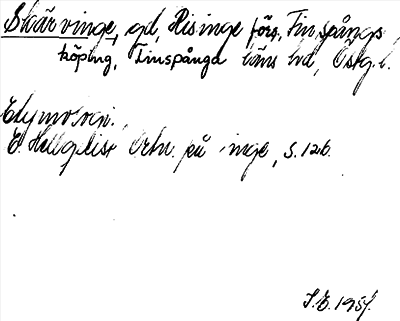 Skärvinge, gd, Risinge förs., Finspångs
köping, Finspånga läns hd, Östg.l.
Etymologi:
E. Hellquist Ortn. på -inge, s. 126.
S.E. 1951.